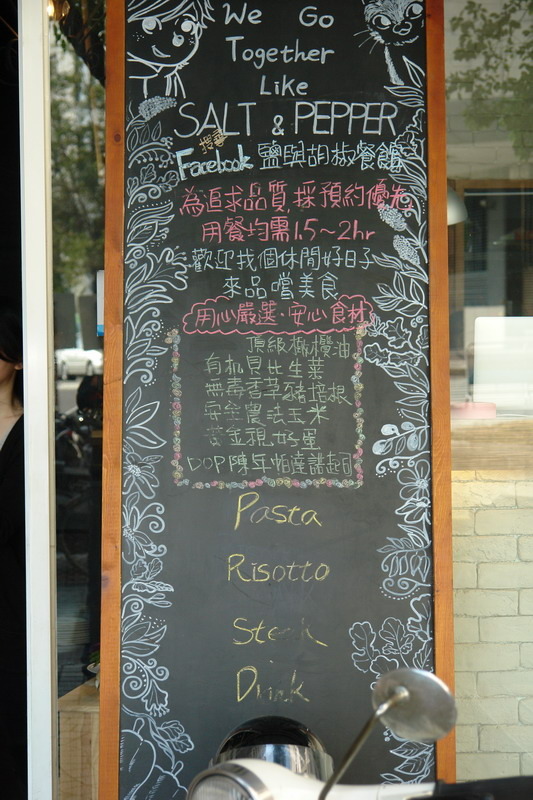 We Go
Together
Like
SALT & PEPPER
搜尋
Facebook 鹽與胡椒餐館
為追求品質,採預約優先
用餐均需1.5~2hr
歡迎找個休閒好日子
來品嚐美食
用心嚴選·安心食材
頂級橄欖油
有机貝比生菜
無毒香草豬培根
安全農法玉米
黃金親好蛋
DOP陳年帕達諾起司
Pasta
Risotto
Steak
Drink